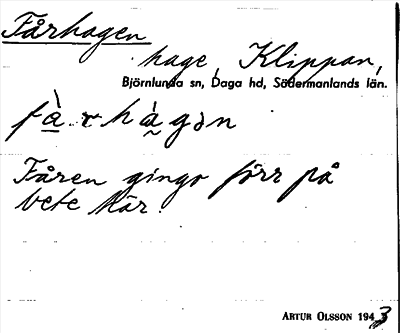 Fårhagen
hage, Klippan,
Björnlunda sn, Daga hd, Södermanlands län.
fà̱rhà̰gən
Fåren gingo förr på
bete här.
ARTUR OLSSON 1943